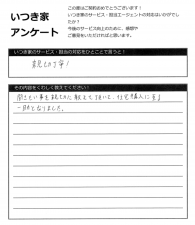 いつき家
アンケート
この度はご契約おめでとうございます！
いつき家のサービス・担当エージェントの対応はいかがでしたか？
今後のサービス向上のために、感想や
ご意見をいただければと思います。
いつき家のサービス・担当の対応をひとことで言うと！
親切丁寧！
その内容をくわしく教えてください！
聞きたい事を親切に教えて頂いて、住宅購入に
一助となりました。